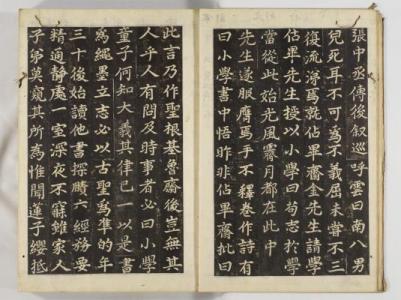 張中丞傳後叙巡呼雲曰南八男
兒死耳不可為不義屈未嘗不三
復流涕焉就佔畢齋金先生請學
佔畢先生授以小學曰苟志於學
當從此始光風霽月都在此中
先生遂服膺焉手不釋卷作詩有
曰小學書中悟昨非佔畢齋批曰
此言乃作聖根基魯齋後豈無其
人乎人有問及時事者必曰小學
童子何知大義其律己一以是書
為繩墨立志必以古聖為準的年
三十後始讀他書探賾六經務要
精通靜處一室深夜不寐雖家人
子弟莫窺其所為惟聞蓮子纓抵